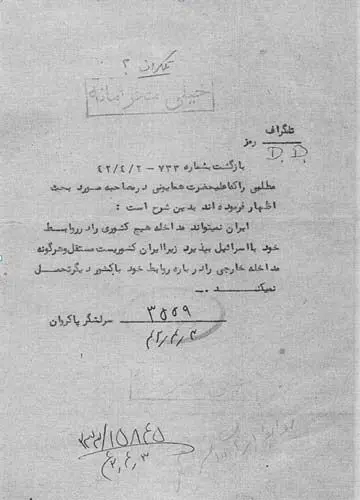 تلگراف ؟
خیلی محرمانه
تلگراف
رمز
D.D.
بازگشت بشماره ۷۳۳ – ۴۲/۴/۲
مطلبی راکه اعلیحضرت همایونی در مصاحبه مورد بحث
اظهار فرموده اند بدین شرح است :
ایران نمیتواند مداخله هیچ کشوری را در روابط
خود با اسرائیل بپذیرد زیرا ایران کشوریست مستقل و هرگونه
مداخله خارجی را درباره روابط خود با کشور دیگر تحمل
نمیکند .
سرلشگر پاکروان
۳۵۵۹
۴۲/۴/۳
۳۳۲/۱۵۸۴۵
۴۲،۴،۳